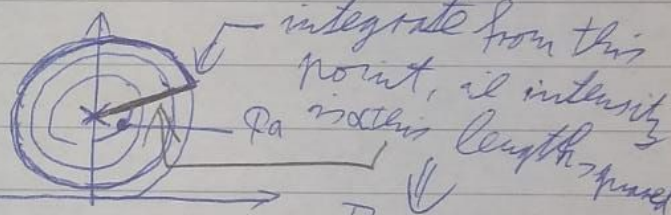 integrate from this
point, ie intensity
Pa is α this length squared